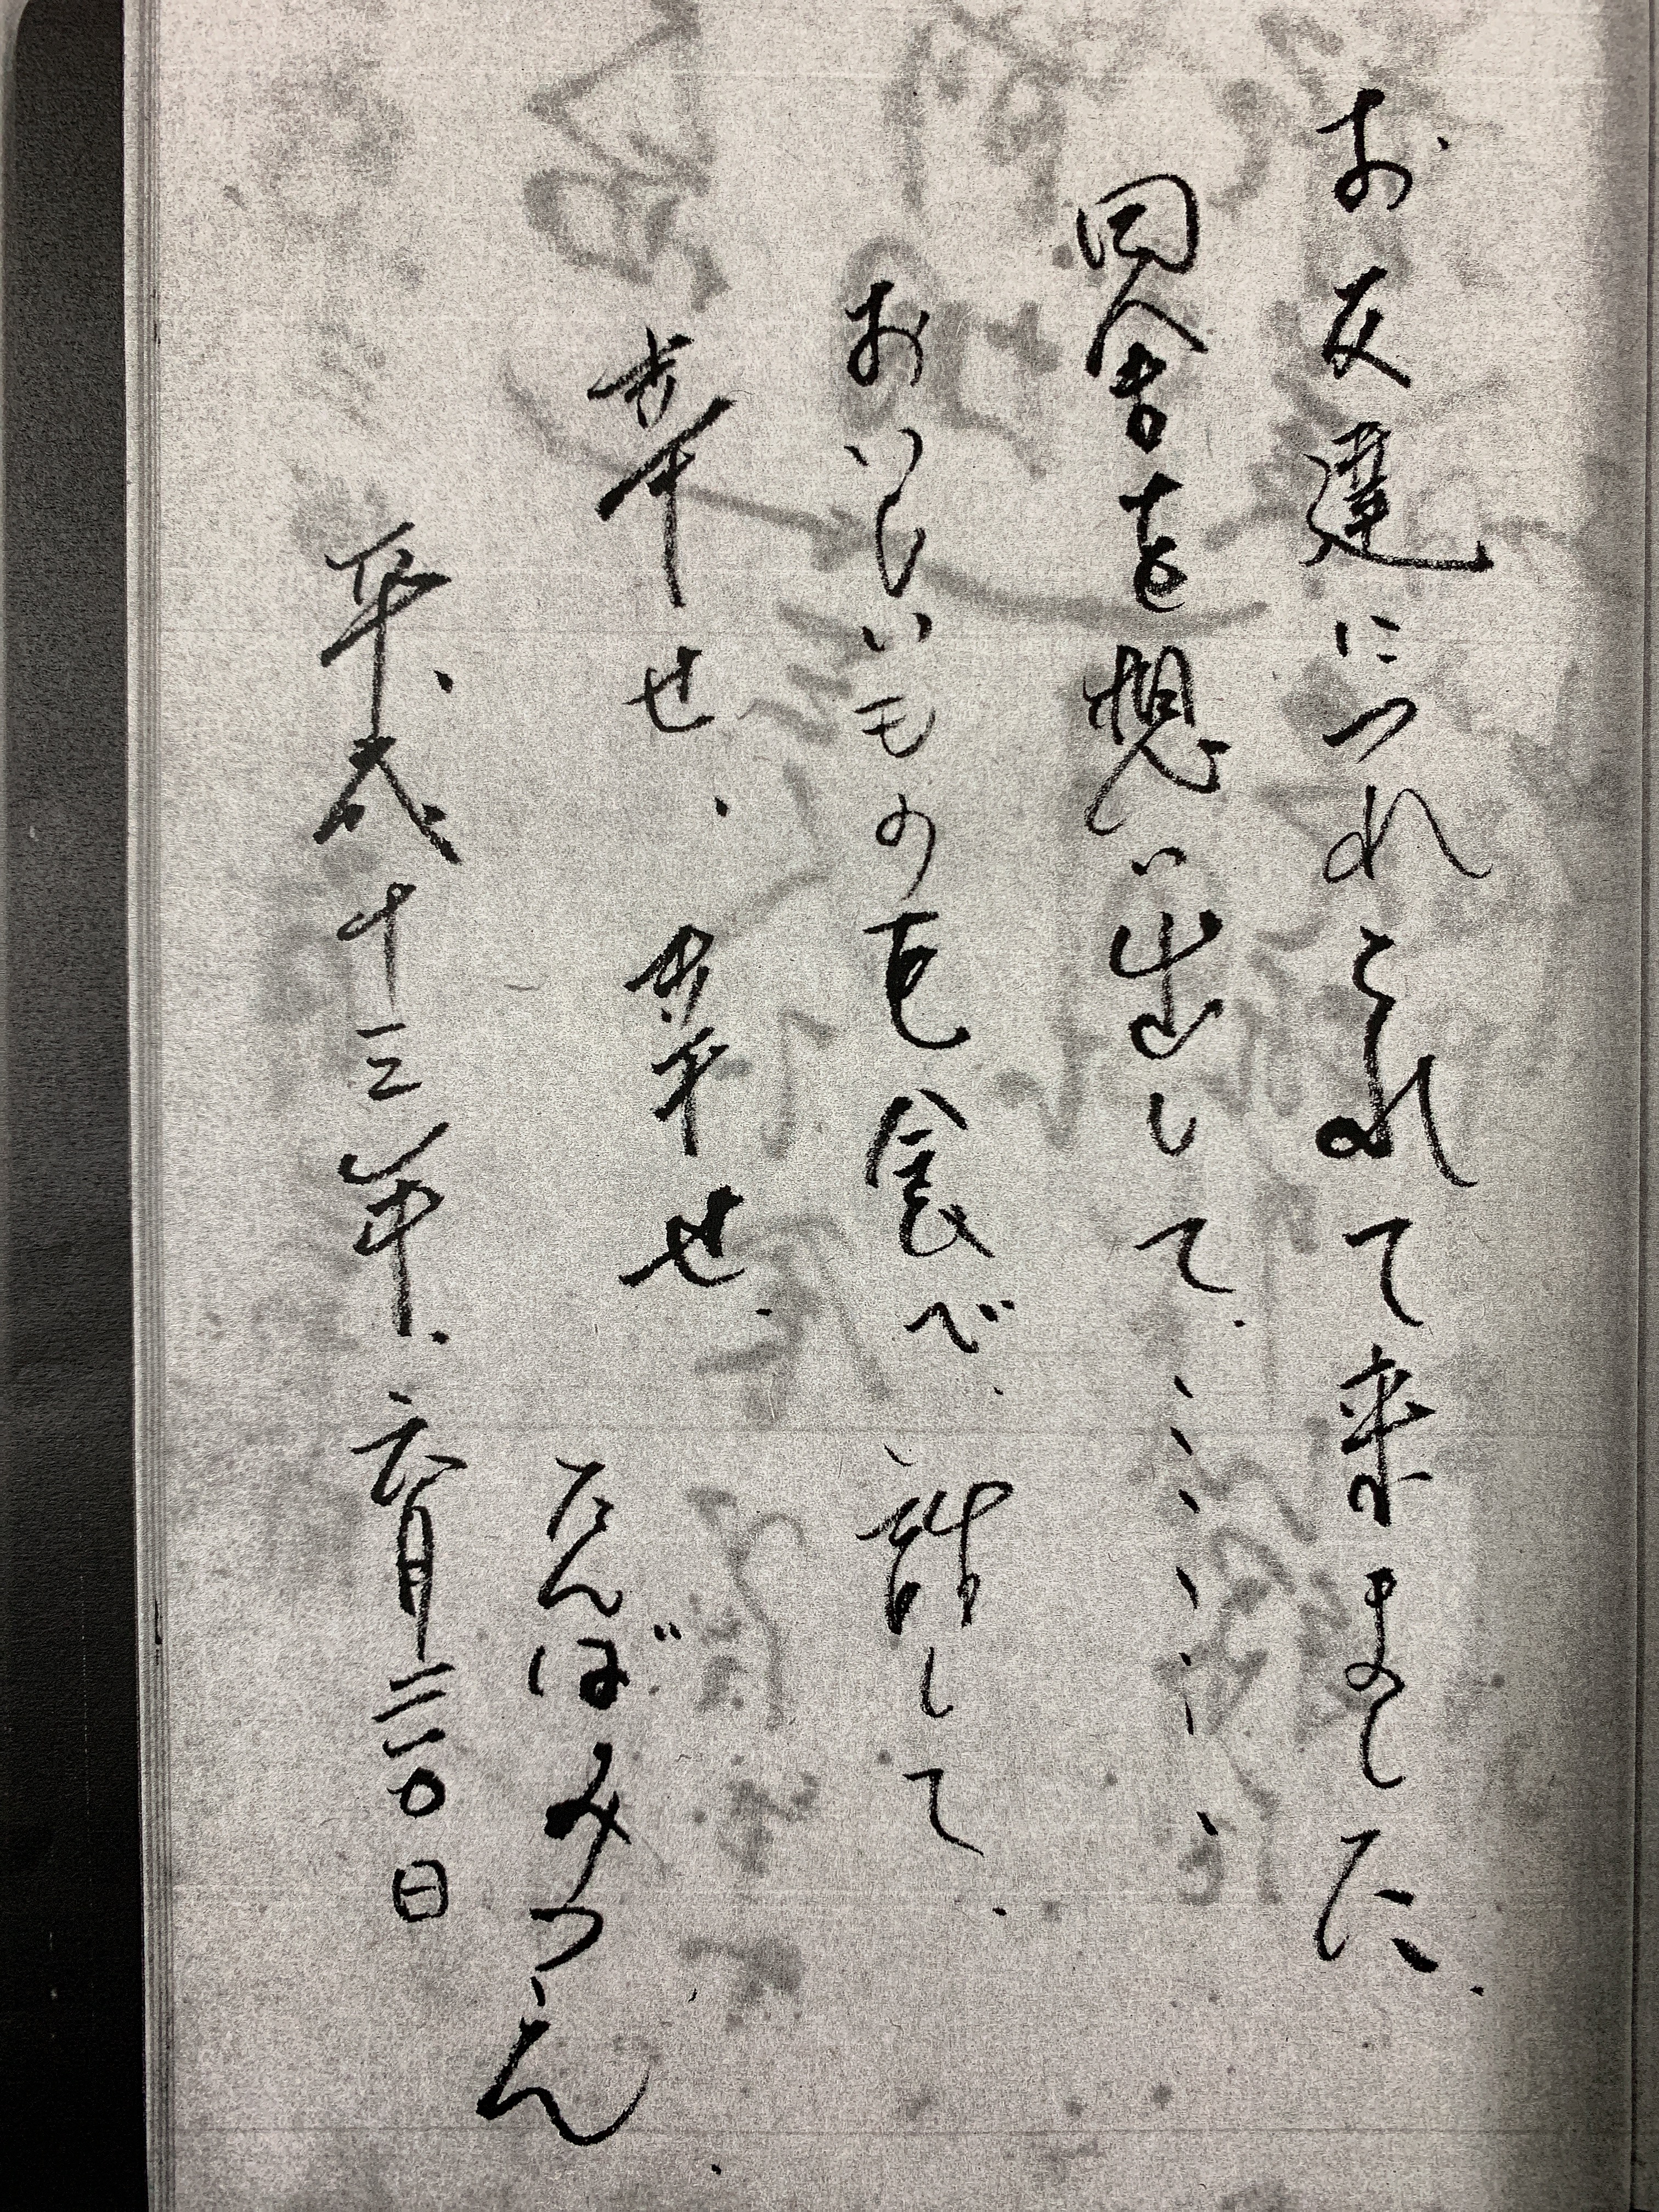 お友達につれられて来ました.
田舎を想い出して.、、、、、、
おいしいものも食べ、話して.
幸せ、幸せ.
たんばみつえ.
平成十三年.六月三〇日